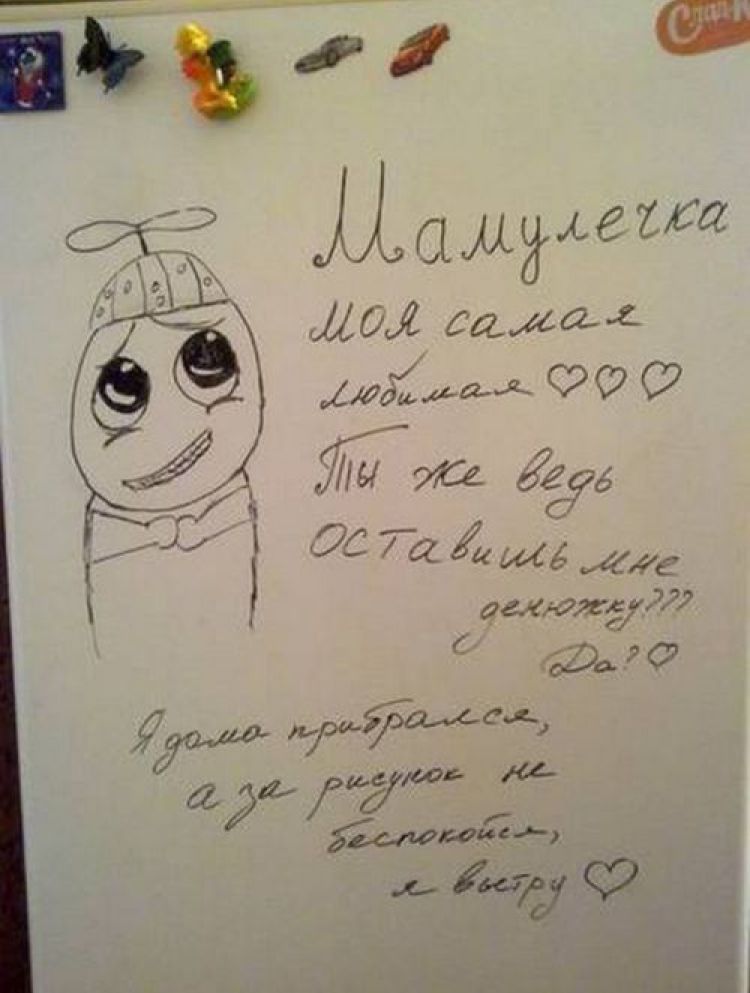 Мамулечка
моя самая
любимая ♡♡♡
Ты же ведь
оставишь мне
денюжку???
Да? ♡
Я дома прибрался,
а за рисунок не
беспокойся,
я вытру ♡